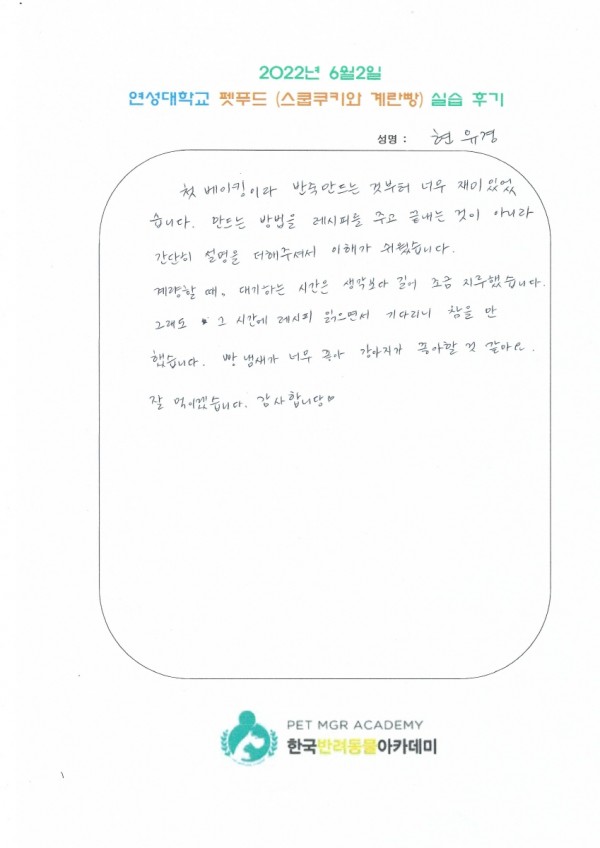 2022년 6월2일
연성대학교 펫푸드 (스쿱쿠키와 계란빵) 실습 후기
성명 : 현 유경
첫 베이킹이라 반죽만드는 것부터 너무 재미있었
습니다. 만드는 방법을 레시피를 주고 끝내는 것이 아니라
간단히 설명을 더해주셔서 이해가 쉬웠습니다.
계량할 때, 대기하는 시간은 생각보다 길어 조금 지루했습니다.
그래도 그 시간에 레시피 읽으면서 기다리니 참을 만
했습니다. 빵 냄새가 너무 좋아 강아지가 좋아할 것 같아요.
잘 먹이겠습니다. 감사합니당♡
PET MGR ACADEMY
한국반려동물아카데미